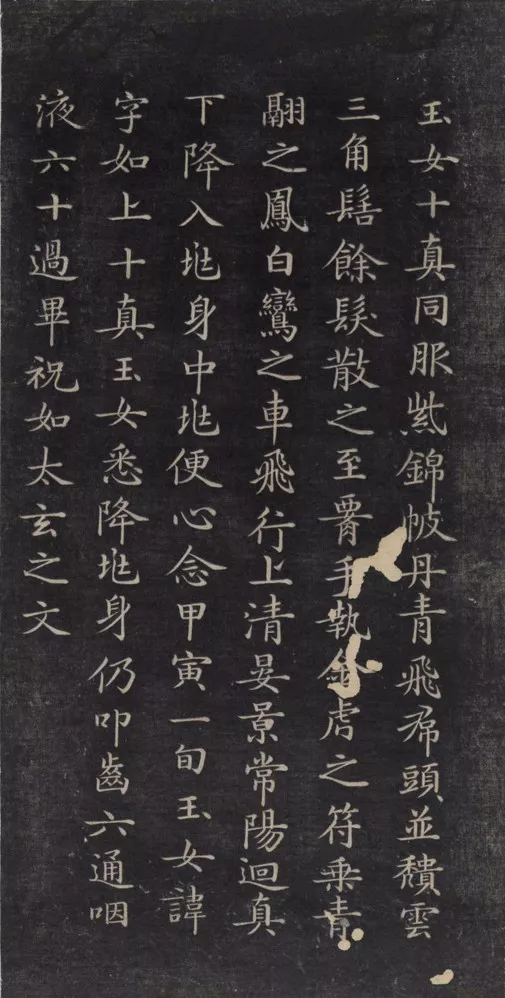 玉女十真同服紫錦帔丹青飛帬頭並穨雲
三角髻餘髮散之至腰手執金虎之符乘青
翮之鳳白鸞之車飛行上清晏景常陽迴真
下降入兆身中兆便心念甲寅一旬玉女諱
字如上十真玉女悉降兆身仍叩齒六通咽
液六十過畢祝如太玄之文